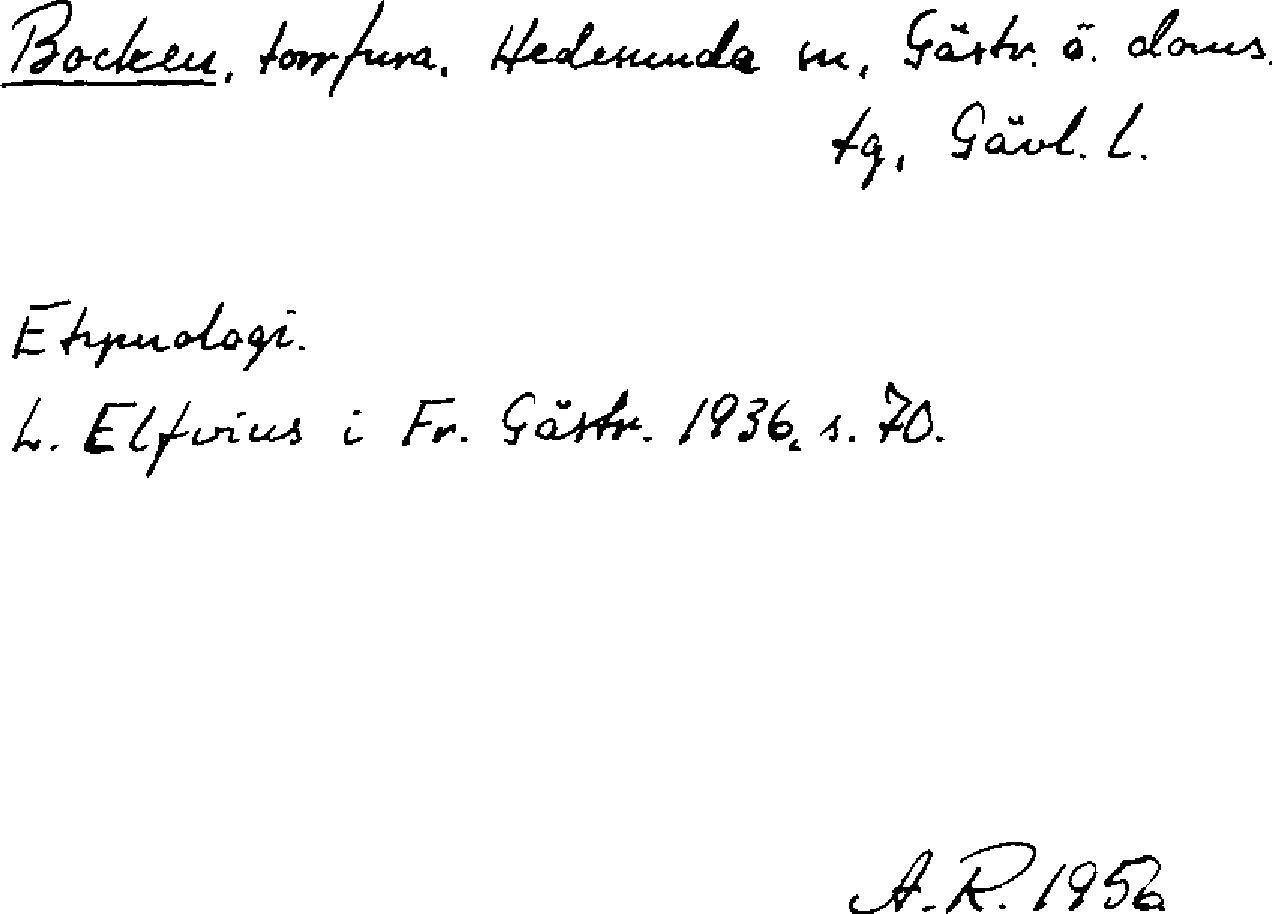 Bocken, torrfura. Hedesunda sn, Gästr. ö. doms.
tg, Gävl. l.
Etymologi.
L. Elfvius i Fr. Gästr. 1936, s. 70.
A. R. 1956